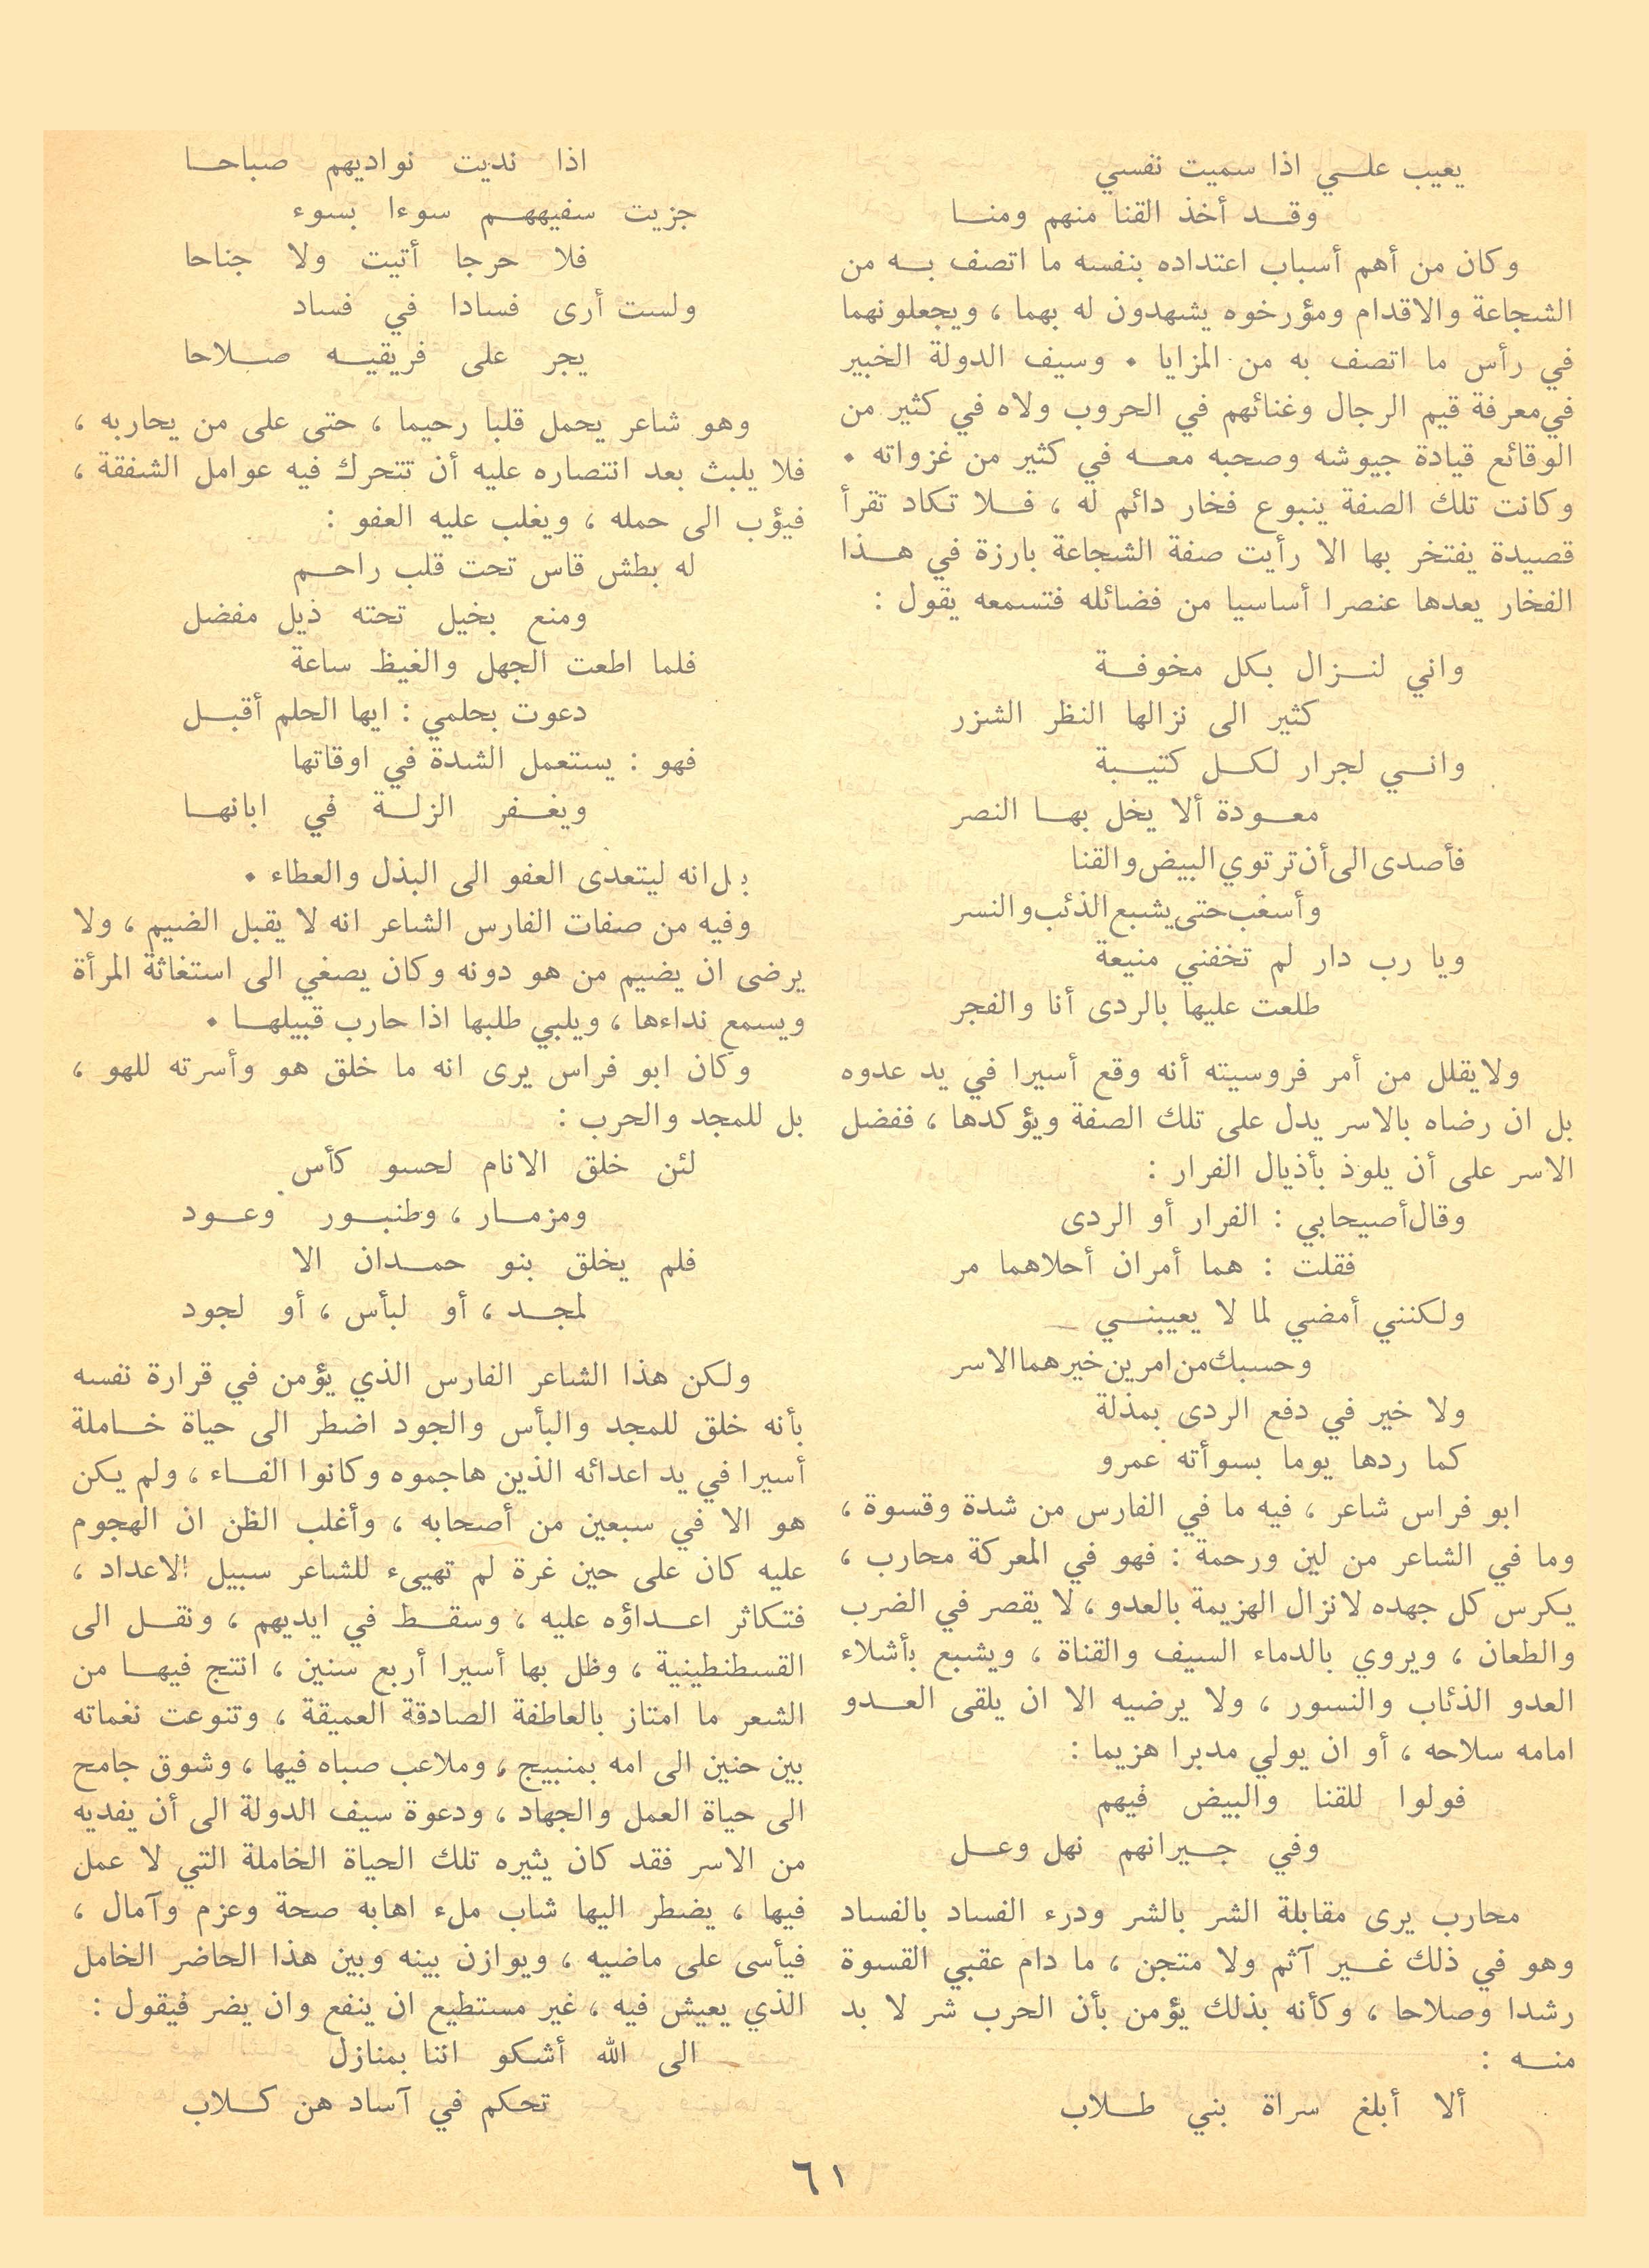 يعيب علي اذا سميت نفسي
وقد أخذ القنا منهم ومنا
وكان من أهم أسباب اعتداده بنفسه ما اتصف به من
الشجاعة والاقدام ومؤرخوه يشهدون له بهما ، ويجعلونهما
في رأس ما اتصف به من المزايا . وسيف الدولة الخبير
في معرفة قيم الرجال وغنائهم في الحروب ولاه في كثير من
الوقائع قيادة جيوشه وصحبه معه في كثير من غزواته .
وكانت تلك الصفة ينبوع فخار دائم له ، فلا تكاد تقرأ
قصيدة يفتخر بها الا رأيت صفة الشجاعة بارزة في هذا
الفخار يعدها عنصرا أساسيا من فضائله فتسمعه يقول :
واني لنزال بكل مخوفة
كثير الى نزالها النظر الشزر
واني لجرار لكل كتيبة
معودة ألا يخل بها النصر
فأصدى الى أن ترتوي البيض والقنا
وأسغب حتى يشبع الذئب والنسر
ويا رب دار لم تخفني منيعة
طلعت عليها بالردى أنا والفجر
ولا يقلل من أمر فروسيته أنه وقع أسيرا في يد عدوه
بل ان رضاه بالاسر يدل على تلك الصفة ويؤكدها ، ففضل
الاسر على أن يلوذ بأذيال الفرار :
وقال أصيحابي : الفرار أو الردى
فقلت : هما أمران أحلاهما مر
ولكنني أمضي لما لا يعيبني
وحسبك من امرين خيرهما الاسر
ولا خير في دفع الردى بمذلة
كما ردها يوما بسوأته عمرو
ابو فراس شاعر ، فيه ما في الفارس من شدة وقسوة ،
وما في الشاعر من لين ورحمة : فهو في المعركة محارب ،
يكرس كل جهده لانزال الهزيمة بالعدو ، لا يقصر في الضرب
والطعان ، ويروي بالدماء السيف والقناة ، ويشبع بأشلاء
العدو الذئاب والنسور ، ولا يرضيه الا ان يلقى العدو
امامه سلاحه ، أو ان يولي مدبرا هزيما :
فولوا للقنا والبيض فيهم
وفي جيرانهم نهل وعل
محارب يرى مقابلة الشر بالشر ودرء الفساد بالفساد
وهو في ذلك غير آثم ولا متجن ، ما دام عقبي القسوة
رشدا وصلاحا ، وكأنه بذلك يؤمن بأن الحرب شر لا بد
منه :
ألا أبلغ سراة بني طلاب
اذا نديت نواديهم صباحا
جزيت سفيههم سوءا بسوء
فلا حرجا أتيت ولا جناحا
ولست أرى فسادا في فساد
يجر على فريقيه صلاحا
وهو شاعر يحمل قلبا رحيما ، حتى على من يحاربه ،
فلا يلبث بعد انتصاره عليه أن تتحرك فيه عوامل الشفقة ،
فيؤب الى حمله ، ويغلب عليه العفو :
له بطش قاس تحت قلب راحم
ومنع بخيل تحته ذيل مفضل
فلما اطعت الجهل والغيظ ساعة
دعوت بحلمي : ايها الحلم أقبل
فهو : يستعمل الشدة في اوقاتها
ويغفر الزلة في ابانها
بل انه ليتعدى العفو الى البذل والعطاء .
وفيه من صفات الفارس الشاعر انه لا يقبل الضيم ، ولا
يرضى ان يضيم من هو دونه وكان يصغي الى استغاثة المرأة
ويسمع نداءها ، ويلبي طلبها اذا حارب قبيلها .
وكان ابو فراس يرى انه ما خلق هو وأسرته للهو ،
بل للمجد والحرب :
لئن خلق الانام لحسو كأس
ومزمار ، وطنبور وعود
فلم يخلق بنو حمدان الا
لمجد ، أو لبأس ، أو لجود
ولكن هذا الشاعر الفارس الذي يؤمن في قرارة نفسه
بأنه خلق للمجد والبأس والجود اضطر الى حياة خاملة
أسيرا في يد اعدائه الذين هاجموه وكانوا الفاء ، ولم يكن
هو الا في سبعين من أصحابه ، وأغلب الظن ان الهجوم
عليه كان على حين غرة لم تهيىء للشاعر سبيل الاعداد ،
فتكاثر اعداؤه عليه ، وسقط في ايديهم ، ونقل الى
القسطنطينية ، وظل بها أسيرا أربع سنين ، انتج فيها من
الشعر ما امتاز بالعاطفة الصادقة العميقة ، وتنوعت نغماته
بين حنين الى امه بمنبيج ، وملاعب صباه فيها ، وشوق جامح
الى حياة العمل والجهاد ، ودعوة سيف الدولة الى أن يفديه
من الاسر فقد كان يثيره تلك الحياة الخاملة التي لا عمل
فيها ، يضطر اليها شاب ملء اهابه صحة وعزم وآمال ،
فيأسى على ماضيه ، ويوازن بينه وبين هذا الحاضر الخامل
الذي يعيش فيه ، غير مستطيع ان ينفع وان يضر فيقول :
الى الله أشكو اننا بمنازل
تحكم في آساد هن كلاب
٦١